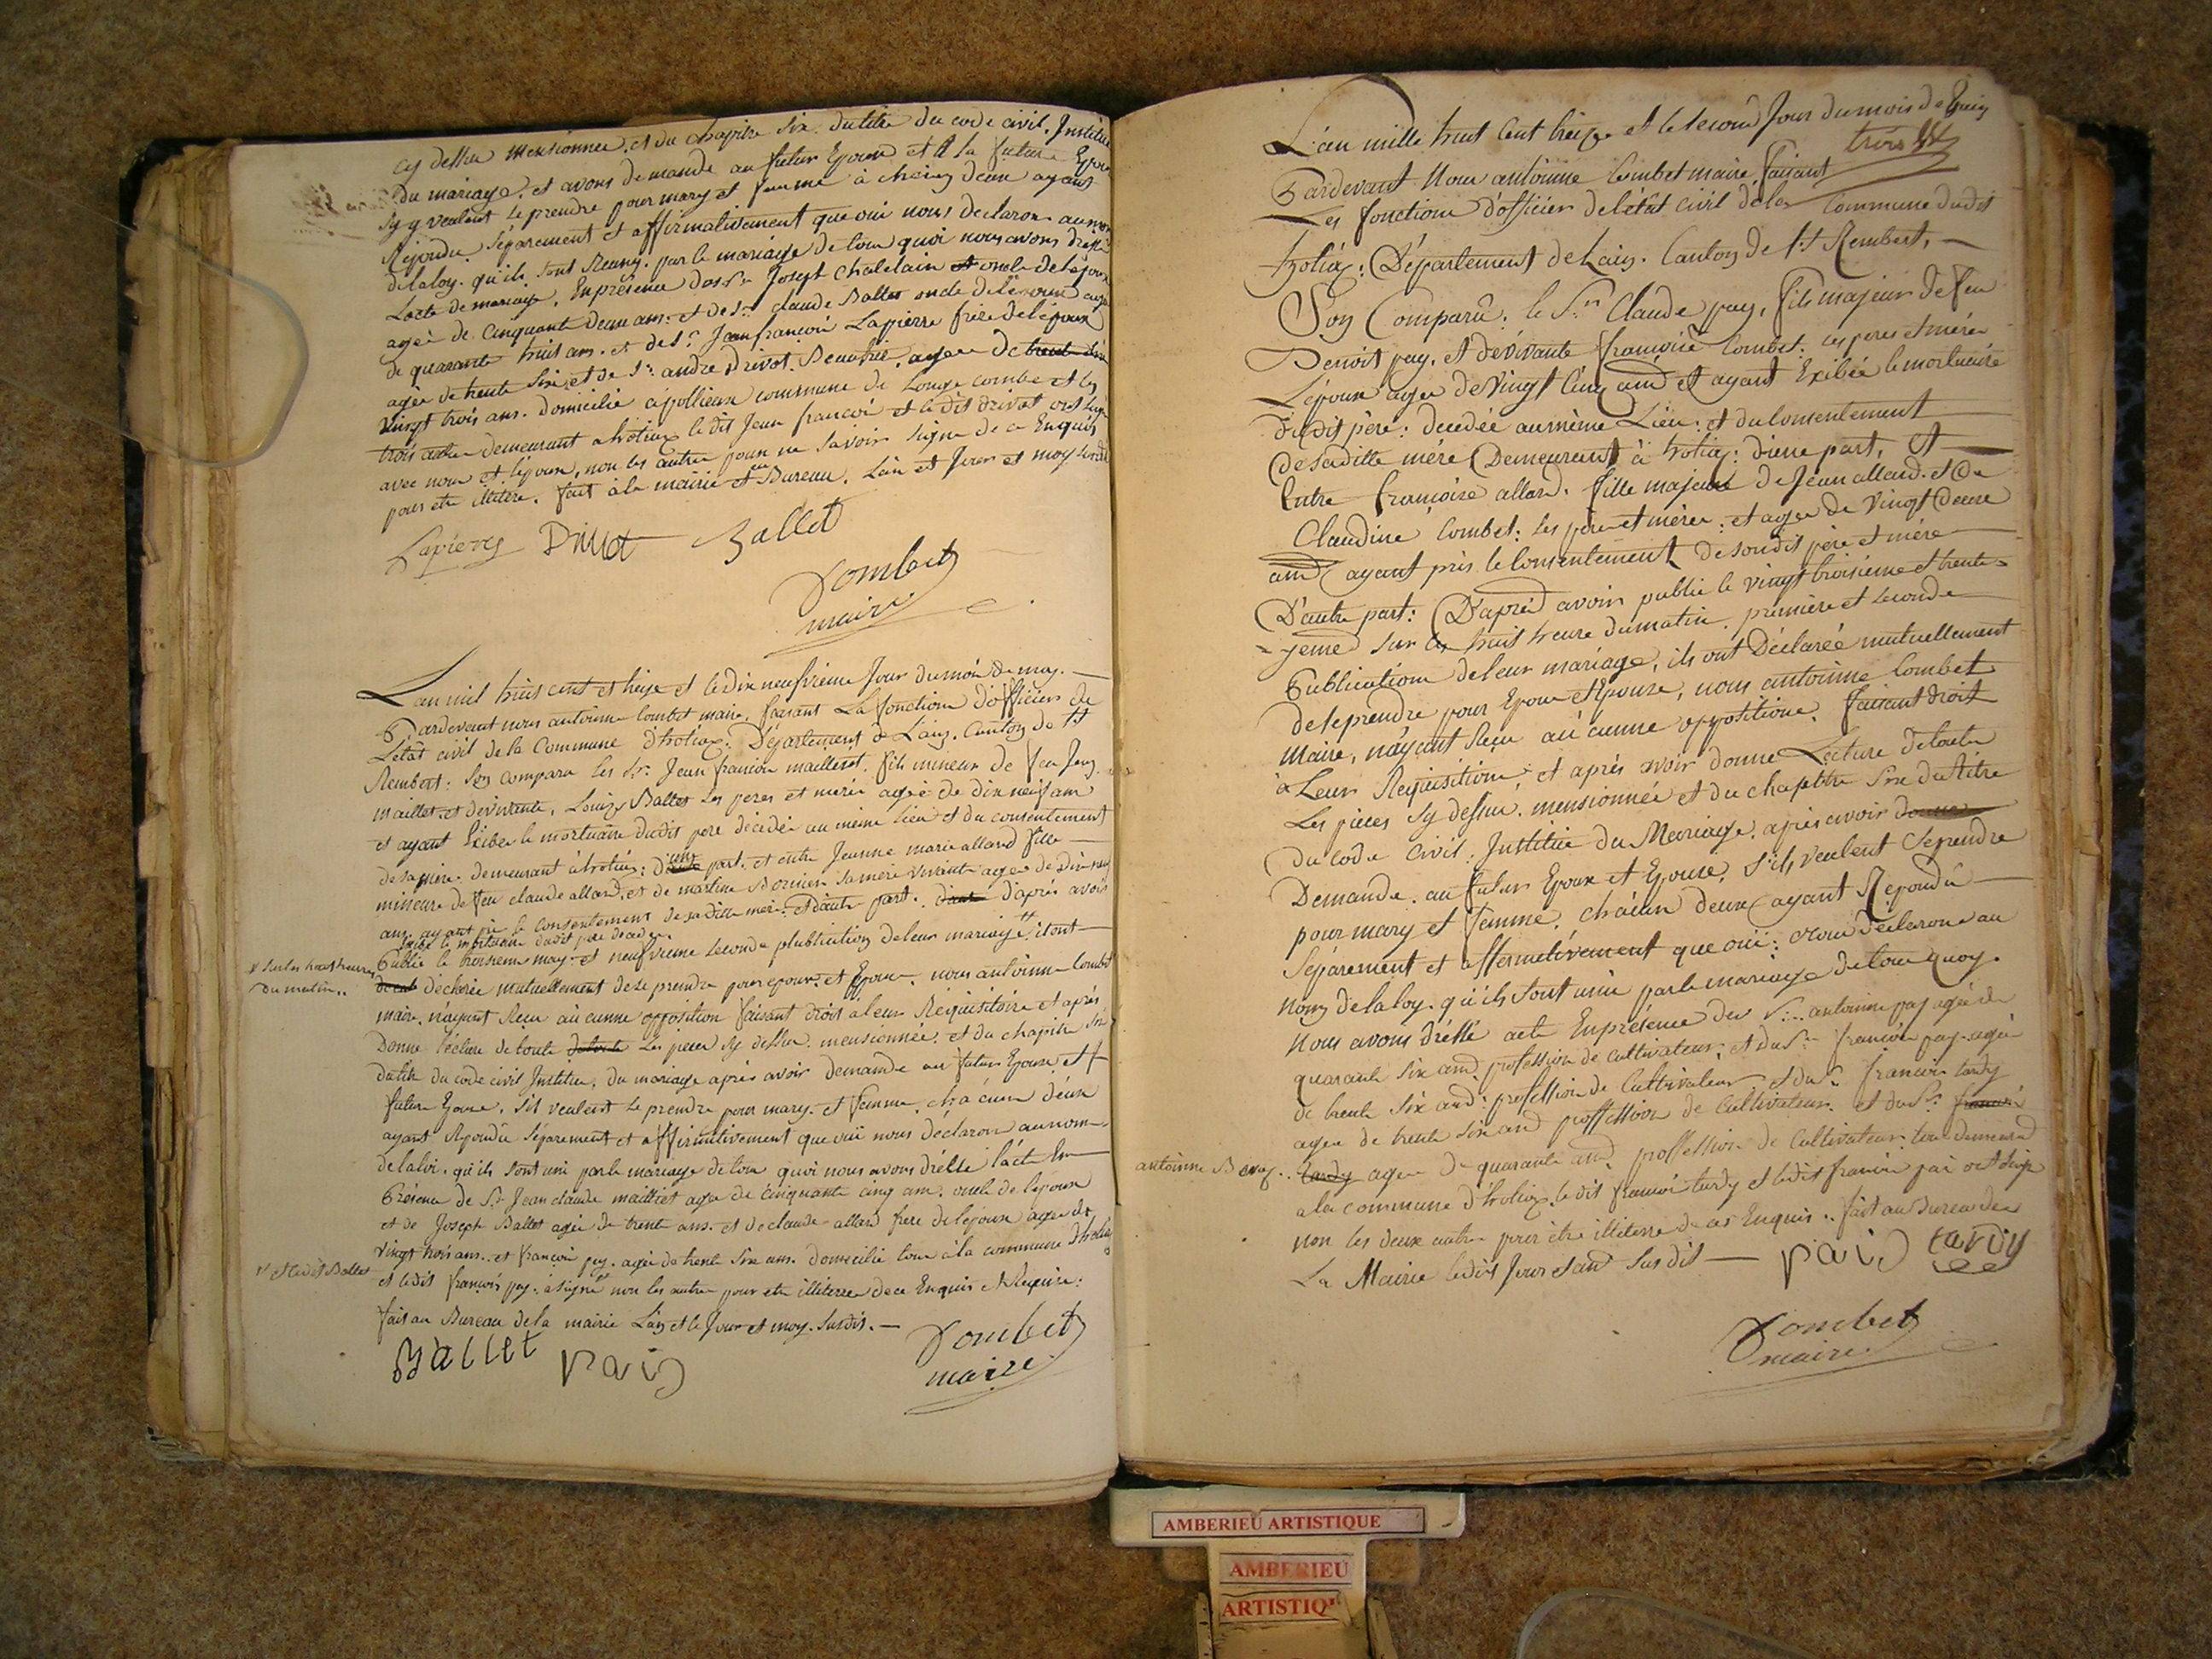 cy dessu mensionnée, et du chapitre six du titre du code civil, Institue
du mariage, et avons demandé au futur Epoux et A la future Epou
sy y veulent se prendre pour mary et femme à chacun deux ayant
Repondu séparement et affirmativement que oui nous declarons au nom
de la loy qu'ils sont Reuny par le mariage de tout quoi nous avons dressé
Lacte de mariage, En présence des Sr Josept Chatelain et oncle de lépoux
agée de cinquante deux ans et de Sr claude Ballet oncle de lépoux agé
de quarante huit ans et de Sr Jean francois Lapierre frère de lépoux
agée de trente six et de Sr andre Drivot agée de trente
vingt trois ans domicilié commune de Longe combe et les
trois autre demeurant a holiaz le dit Jean francoi et le dit drivot ont signé
avec nous et lépoux, non les autre pour ne savoir signe de ce Enquis
pour etre illitere. fait à la mairie et au Bureau. Lan et Jour et moy susdit
Lapierre Drivot Ballet
Combet
maire
Lan mil huit cent et treize et le dix neufvieme Jour du moi de may.
Pardevant nous antoinne Combet maire, faisant La fonctions d'officier de
Létat civil de la Commune d'holiaz. Département de L'ain. Canton de St
Rembert: son comparu les Sr Jean francois mailleret fils mineur de feu Jean
maillet et de vivante, Louize Ballet Les peres et merer agée de dix neuf ans
et ayant Exibée le mortuaire dudit pere décédée au même lieu et du consentement
de sa mere demeurant à holiaz: d'une part. et entre Jeanne marie allard fille
mineure de feu claude allard, et de martine Bornier sa mère vivante agée de Dix neuf
ans, ayant pri le consentement de sa ditte mere et d'autre part. d'aprés avoir
Exibé le mortuaire dudit pere decedee
Publié le troisieme may et neufvieme seconde plublication de leur mariage, # il ont
# sur les huit heures
du matin..
déclarée mutuellement de se prendre pour epoux et Epouse. nous antoinne Combet
maire, n'ayant Recu au cunne opposition faisant droit a leur Requisitoire et aprés
Donne lecture de toute Les pieces sy dessu mensionnée, et du chapitre six
du titre du code civil Institue. du mariage apres avoir demande au futur Epoux et
future Epouse, sil veulent se prendre pour mary. et femme, chacun deux
ayant Repondu séparement et affirmativement que oui nous déclaron au nom
de la loi, qu'ils sont uni par le mariage de tous quoi nous avons dréssé l'acte En
Présence de Sr Jean claude mailliet agée de cinquante cinq ans oncle de lepoux
et de Joseph Ballet agée de trente ans et de claude allard frere de lépoux agée de
vingt trois ans et francoi pey agée de trente six ans. domicilié tous à la commune d'holiaz
# et le dit Ballet
et le dit francois pey a signé # non les autre pour etre illiterer de ce Enquis et Require:
fait au Bureau de la mairie L'an et le Jour et moy susdit.
BalleT pais
Combet
maire
L'an mille huit Cent treize et le second Jour du mois de Juin
Pardevant Nous antoinne Combet maire, faisant
Les fonctions d'officier de létat civil de la Commune dudit
holiaz; Département de Lain. Canton de St Rembert,
Son Comparû: le Sr Claude pay, fils majeur de feu
Benoit pay, et de vivante françoise Combet: ces peres et mérer
L'épouse agée de vingt cinq and et ayant Exibée le mortuaire
dudit père: decedée au même Lieu: et du consentement
de sadille mére Demeurant à holiaz: d'une part, et
Entre françoise allard. fille majeure de Jean allard. et De
Claudine Combet: Les père et mérer. et agée de vingt Deux
and ayant pris le Consentement de sondit père et mére
D'autre part: D'aprés avoir publié le vingt troisième et trente
- yeme sur les huit heure du matin, première et seconde
Publication de leur mariage, ils ont Déclarée mutuellement
de se prendre pour Epoux et Epouse, nous antoinne Combet
Maire, n'ayant Reçu au cunne oppositione, faisant droit
à Leur Requisition et après avoir donné Lecture de toute
Les pieces sy dessu, mensionnée et du chapittre six du titre
du Code Civil: Institué du Mariage, après avoir
Demande. au futur Epoux et Epouse, s'ils veulent se prendre
pour mary et femme, chacun deux ayant Repondû
séparement et affermativement que oui: Nous déclarons au
nom de la loy. qu'ils sont unie par le mariage de tous quoy.
Nous avons dréssé acte En présence des Sr antoinne pay agée de
quarante six and, profession de cultivateur, et du Sr francoi pay agée
de trente six and: profession de Cultivateur et du Sr francois tardy
agée de trente six and proffession de cultivateur. et du Sr
antoinne
agée de quarante and, proffession de Cultivateur tous demeurant
a la commune d'holiaz, le dit francoi tardy et le dit francoi pai ont signé
non les deux autre pour être illiterre de ce Enquis.. fait au Bureau de
La Mairie ledit Jour et and sus dit
pais tardy
Combet
maire.
AMBERIEU ARTISTIQUE
AMBERIEU
ARTISTIQ